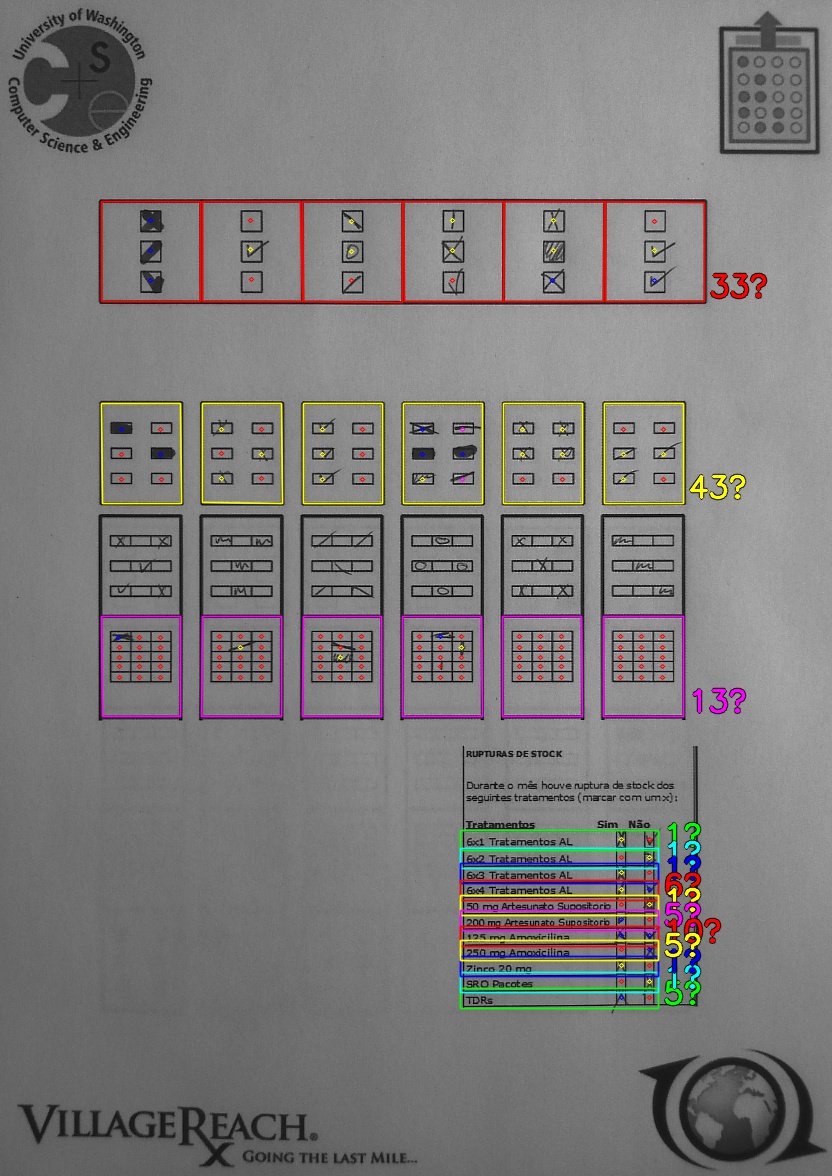 University of Washington
Computer Science & Engineering
S
e
33?
43?
13?
RUPTURAS DE STOCK
Durante o mês houve ruptura de stock dos
seguintes tratamentos (marcar com um x):
Tratamentos Sim Não
6x1 Tratamentos AL 1?
6x2 Tratamentos AL 1?
6x3 Tratamentos AL 1?
6x4 Tratamentos AL 6?
50 mg Artesunato Supositorio 1?
200 mg Artesunato Supositorio 5?
125 mg Amoxicilina 10?
250 mg Amoxicilina 5?
Zinco 20 mg 1?
SRO Pacotes 1?
TDRs 5?
VILLAGEREACH®
Rx GOING THE LAST MILE...